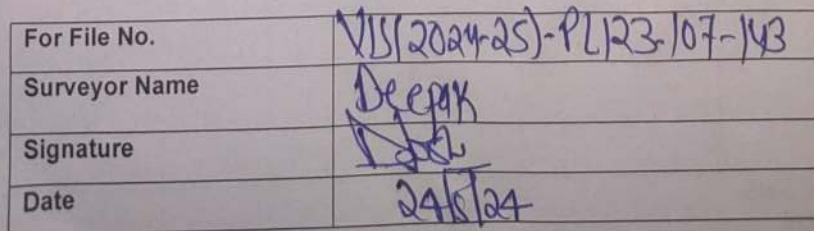 For File No. VIS(2024-25)-PL123-107-143
Surveyor Name Deepak
Signature
Date 24/5/24